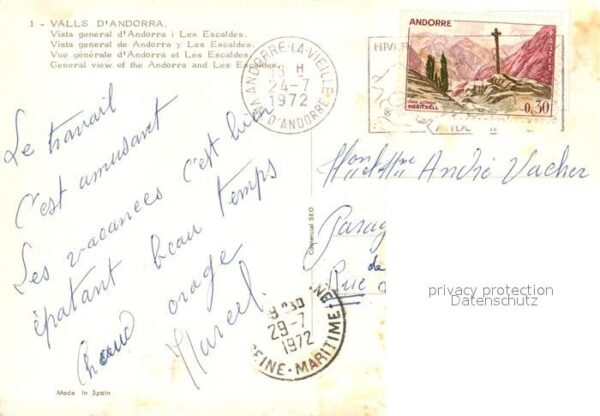 1 - VALLS D'ANDORRA.
Vista general d'Andorra i Les Escaldes.
Vista general de Andorra y Les Escaldes.
Vue générale d'Andorra et Les Escaldes.
General view of the Andorra and Les Escaldes.
ANDORRE-LA-VIEILLE
18 H
24-7
1972
VAL D'ANDORRE
ANDORRE
POSTES
CROIX GOTHIQUE
MERITXELL
0,30
Le travail
c'est amusant
Les vacances c'est bien
épatant beau temps
chaud orage
Marcel.
André Vacher
Garage
de
Rue
Comercial SEO
29-7
1972
SEINE-MARITIME
privacy protection
Datenschutz
Made in Spain